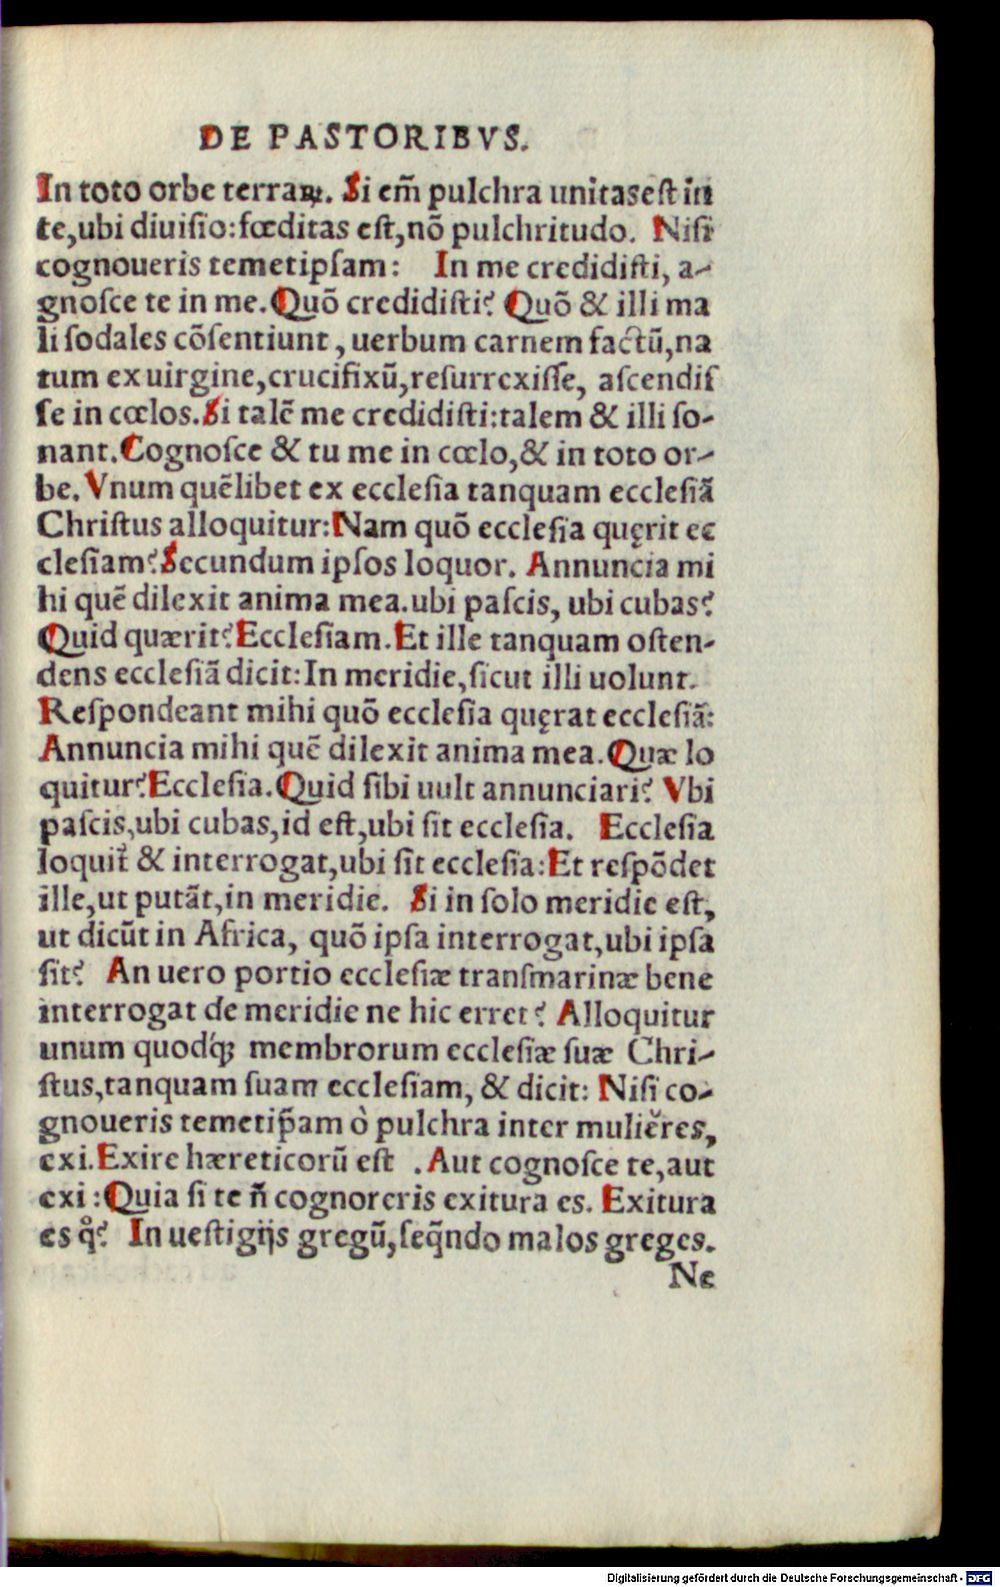 DE PASTORIBVS.
In toto orbe terraꝝ. Si em̃ pulchra unitas est in
te,ubi diuiſio:fœditas eſt,nõ pulchritudo. Niſi
cognoueris temetipſam: In me credidiſti, a-
gnoſce te in me.Quõ credidiſti? Quõ & illi ma
li ſodales cõſentiunt, uerbum carnem factũ,na
tum ex uirgine,crucifixũ,reſurrexiſſe, aſcendiſ
ſe in cœlos.Si talẽ me credidiſti:talem & illi ſo-
nant.Cognoſce & tu me in cœlo,& in toto or-
be. Vnum quẽlibet ex eccleſia tanquam eccleſiã
Chriſtus alloquitur:Nam quõ eccleſia quęrit ec
cleſiam?Secundum ipſos loquor. Annuncia mi
hi quẽ dilexit anima mea.ubi paſcis, ubi cubas?
Quid quærit?Eccleſiam.Et ille tanquam oſten-
dens eccleſiã dicit:In meridie,ſicut illi uolunt.
Reſpondeant mihi quõ eccleſia quęrat eccleſiã:
Annuncia mihi quẽ dilexit anima mea.Quæ lo
quitur?Eccleſia.Quid ſibi uult annunciari? Vbi
paſcis,ubi cubas,id eſt,ubi ſit eccleſia. Eccleſia
loquit̃ & interrogat,ubi ſit eccleſia:Et reſpõdet
ille,ut putãt,in meridie. Si in ſolo meridie eſt,
ut dicũt in Africa, quõ ipſa interrogat,ubi ipſa
ſit? An uero portio eccleſiæ tranſmarinæ bene
interrogat de meridie ne hic erret? Alloquitur
unum quodq́ꝫ membrorum eccleſiæ ſuæ Chri-
ſtus,tanquam ſuam eccleſiam, & dicit: Niſi co-
gnoueris temetip̃am ò pulchra inter mulieres,
exi.Exire hæreticorũ eſt .Aut cognoſce te,aut
exi:Quia ſi te ñ cognoreris exitura es. Exitura
es q̊? In ueſtigijs gregũ,ſeq̃ndo malos greges.
Ne
Digitalisierung gefördert durch die Deutsche Forschungsgemeinschaft - DFG